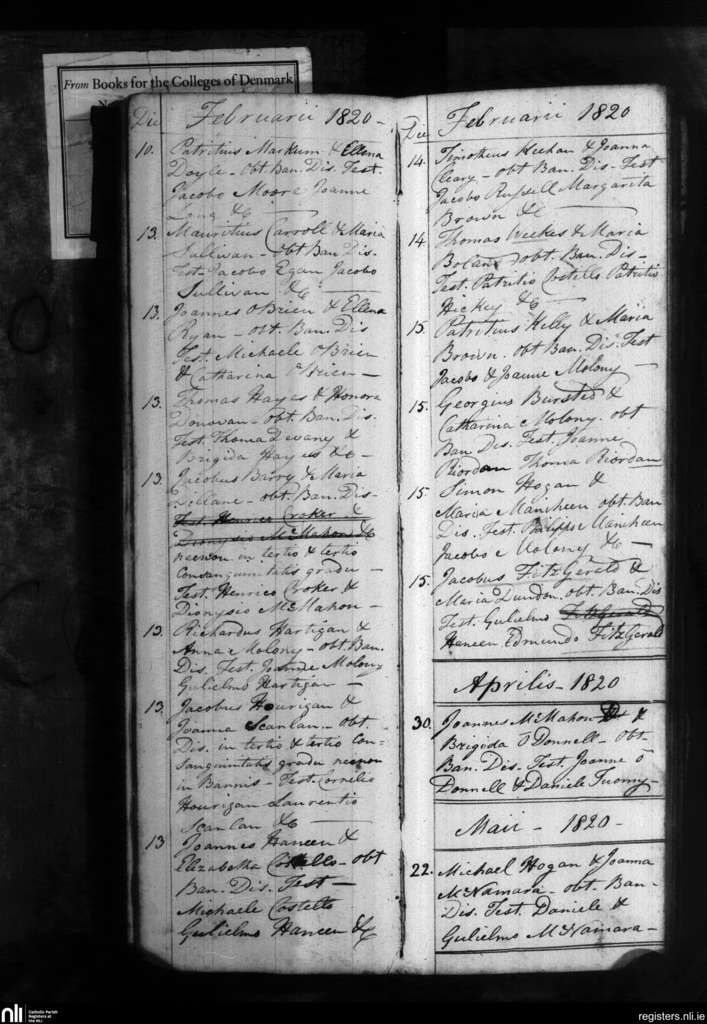 From Books for the Colleges of Denmark
Die Februarii 1820 -
10. Patritius Markum & Ellena
Doyle - obt. Ban. Dis. Test.
Jacobo Moore Joanne
Long &c
13. Mauritius Carroll & Maria
Sullivan - obt Ban Dis.
Test. Jacobo Egan Jacobo
Sullivan &c
13. Joannes OBrien & Ellena
Ryan - obt. Ban. Dis
Test. Michaele OBrien
& Catharina OBrien -
13. Thomas Hayes & Honora
Donovan - obt. Ban. Dis.
Test. Thoma Devany &
Brigida Hayes &c -
13. Jacobus Barry & Maria
- obt. Ban. Dis -
Test. Henrico Croker &
Dionysio McMahon &c
necnon in tertio & tertio
Consanguinitatis gradu -
Test. Henrico Croker &
Dionysio McMahon -
13. Richardus Hartigan &
Anna Molony - obt. Ban.
Dis. Test. Joanne Molony
Gulielmo Hartigan -
13. Jacobus Hourigan &
Joanna Scanlan - obt.
Dis. in tertio & tertio Con-
sanguinitatis gradu necnon
in Bannis - Test. Cornelio
Hourigan Laurentio
Scanlan &c
13 Joannes Haneen &
Elizabetha Costello - obt
Ban. Dis. Test -
Michaele Costello
Gulielmo Haneen &c
Die Februarii 1820
14. Timotheus Heehan & Joanna
Cleary - obt Ban. Dis - Test
Jacobo Russell Margarita
Brown &c
14 Thomas Weekes & Maria
Boland obt. Ban. Dis -
Test. Patritio Costello Patritio
Hickey &c
15. Patritius Kelly & Maria
Brown. obt Ban. Dis. Test
Jacobo & Joanne Molony -
15. Georgius Bursted &
Catharina Molony. obt
Ban Dis. Test. Joanne
Riordan Thoma Riordan
15 Simon Hogan &
Maria Mainheen obt. Ban
Dis. Test. Philippo Mainheen
Jacobo Molony &c -
15. Jacobus FitzGerald &
Maria Dundon. obt. Ban. Dis
Test. Gulielmo FitzGerald
Haneen Edmundo FitzGerald
Aprilis - 1820
30. Joannes McMahon & &
Brigida O Donnell - Obt.
Ban. Dis. Test. Joanne O
Donnell & Daniele Tuomy -
Maii - 1820 -
22. Michael Hogan & Joanna
McNamara - obt. Ban -
Dis. Test. Daniele &
Gulielmo McNamara -
nli
Catholic Parish
Registers at
the NLI
registers.nli.ie